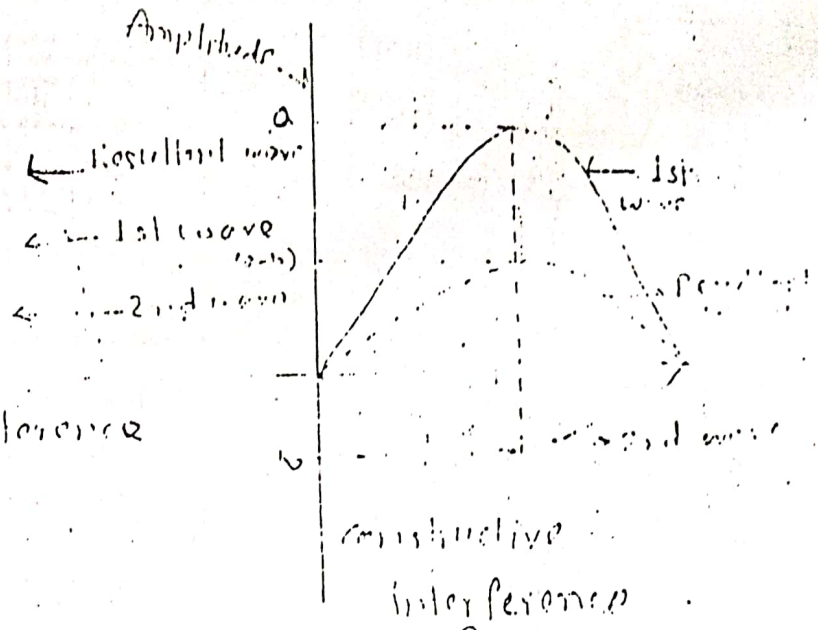 Amplitude
a
Resultant wave
1st
wave
1st wave
(a-b)
2nd wave
b
2nd wave
constructive
interference